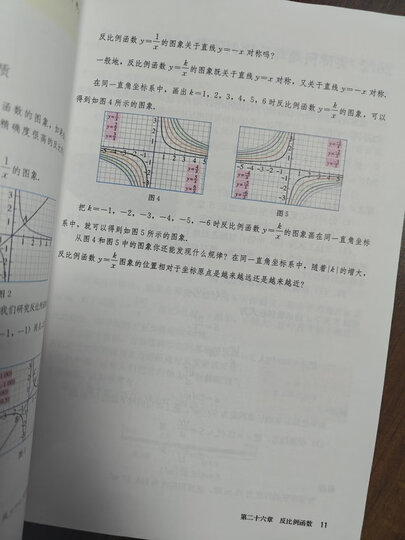 反比例函数 y=1/x 的图象关于直线 y=-x 对称吗?
一般地, 反比例函数 y=k/x 的图象既关于直线 y=x 对称, 又关于直线 y=-x 对称.
在同一直角坐标系中, 画出 k=1, 2, 3, 4, 5, 6 时反比例函数 y=k/x 的图象, 可以
得到如图 4 所示的图象.
图 4
图 5
把 k=-1, -2, -3, -4, -5, -6 时反比例函数 y=k/x 的图象画在同一直角坐标
系中, 就可以得到如图 5 所示的图象.
从图 4 和图 5 中的图象你还能发现什么规律? 在同一直角坐标系中, 随着 |k| 的增大,
反比例函数 y=k/x 图象的位置相对于坐标原点是越来越远还是越来越近?
质
函数的图象, 如
精确度很高的
1/x 的图象.
图 2
我们研究反比例
-1, -1)
第二十六章 反比例函数 11